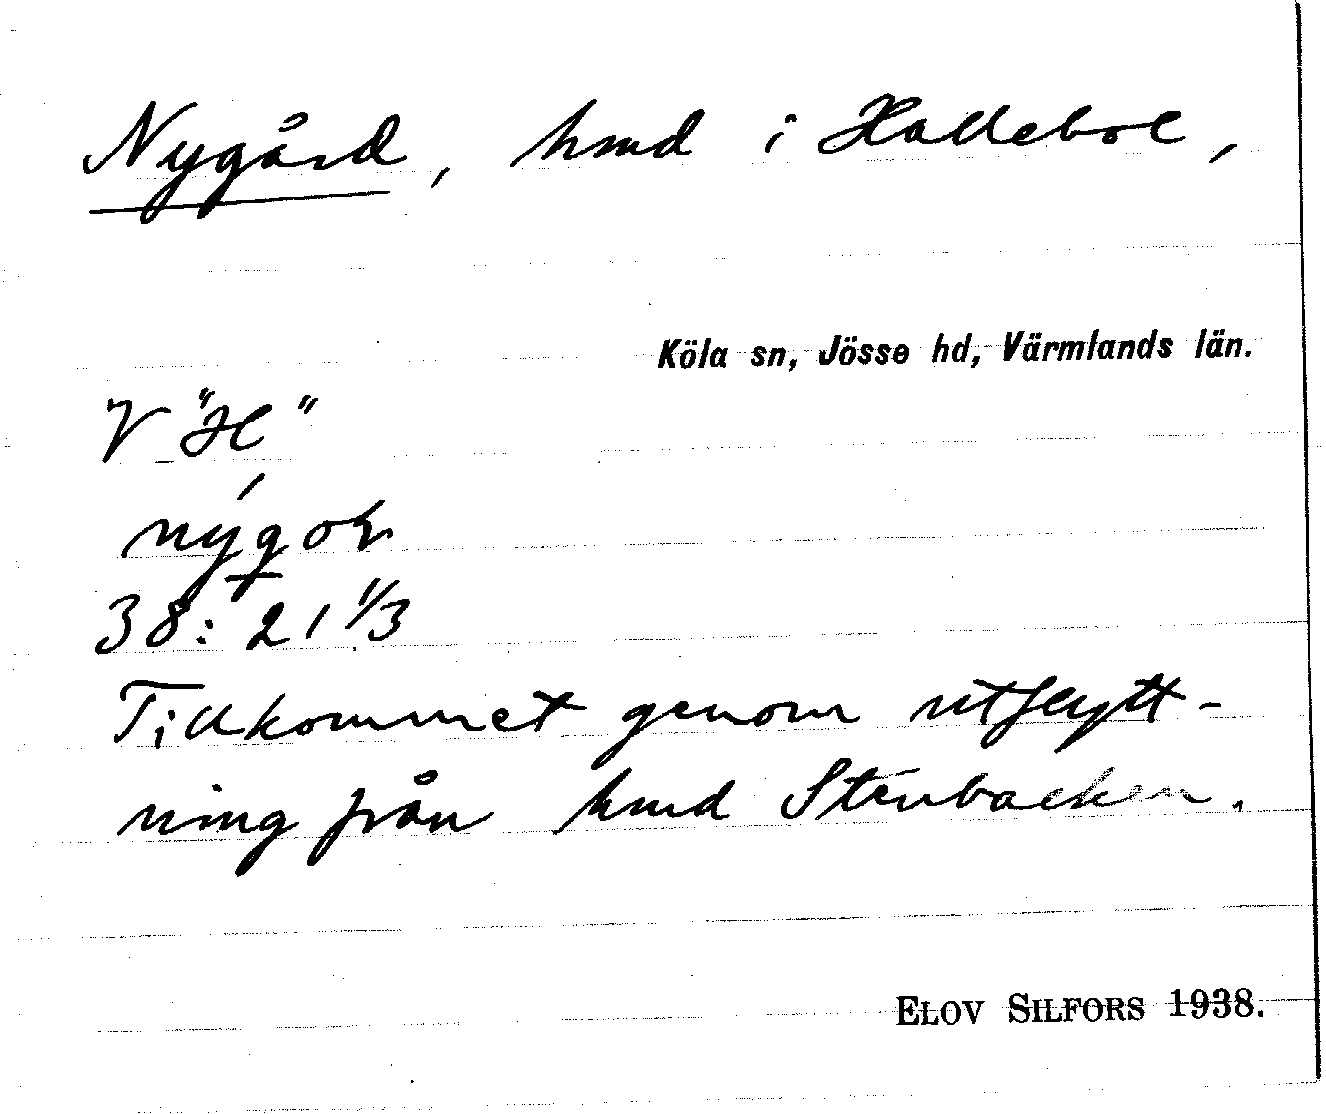 Nygård, hmd i Hallebol,
Köla sn, Jösse hd, Värmlands län.
V "H"
nýgoh
38: 21 1/3
Tillkommet genom utflytt-
ning från hmd Stenbacken.
ELOV SILFORS 1938.